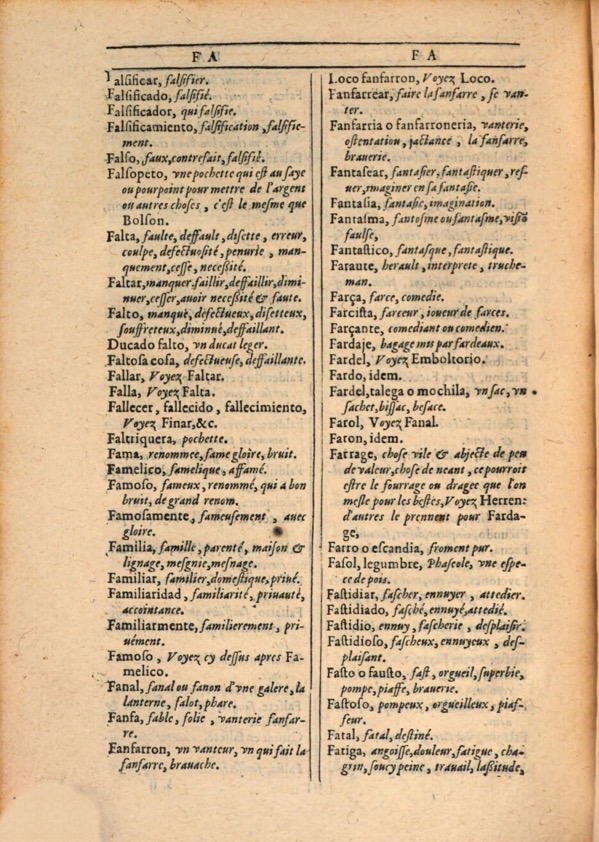 F A
Falsificar, falsifier.
Falsificado, falsifié.
Falsificador, qui falsifie.
Falsificamiento, falsification, falsifie-
ment.
Falso, faux, contrefait, falsifié.
Falsopeto, vne pochette qui est au saye
ou pourpoint pour mettre de l'argent
ou autres choses, c'est le mesme que
Bolson.
Falta, faulte, deffault, disette, erreur,
coulpe, defectuosité, penurie, man-
quement, cesse, necessité.
Faltar, manquer, faillir, deffaillir, dimi-
nuer, cesser, auoir necessité & faute.
Falto, manqué, defectueux, disetteux,
souffreteux, diminué, deffaillant.
Ducado falto, vn ducat leger.
Faltosa cosa, defectueuse, deffaillante.
Fallar, Voyez Faltar.
Falla, Voyez Falta.
Fallecer, fallecido, fallecimiento,
Voyez Finar, &c.
Faltriquera, pochette.
Fama, renommee, fame gloire, bruit.
Famelico, famelique, affamé.
Famoso, fameux, renommé, qui a bon
bruit, de grand renom.
Famosamente, fameusement, auec
gloire.
Familia, famille, parenté, maison &
lignage, mesgnie, mesnage.
Familiar, familier, domestique, priué.
Familiaridad, familiarité, priuauté,
accointance.
Familiarmente, familierement, pri-
uément.
Famoso, Voyez cy dessus apres Fa-
melico.
Fanal, fanal ou fanon d'vne galere, la
lanterne, falot, phare.
Fanfa, fable, folie, vanterie fanfar-
re.
Fanfarron, vn vanteur, vn qui fait la
fanfarre, brauache.
F A
Loco fanfarron, Voyez Loco.
Fanfarrear, faire la fanfarre, se van-
ter.
Fanfarria o fanfarroneria, vanterie,
ostentation, jactance, la fanfarre,
brauerie.
Fantasear, fantasier, fantastiquer, res-
uer, imaginer en sa fantasie.
Fantasia, fantasie, imagination.
Fantasma, fantosme ou fantasme, visiõ
faulse,
Fantastico, fantasque, fantastique.
Faraute, herault, interprete, truche-
man.
Farça, farce, comedie.
Farcista, farceur, ioueur de farces.
Farçante, comediant ou comedien.
Fardaje, bagage mis par fardeaux.
Fardel, Voyez Emboltorio.
Fardo, idem.
Fardel, talega o mochila, vn sac, vn
sachet, bissac, besace.
Farol, Voyez Fanal.
Faron, idem.
Farrage, chose vile & abjecte de peu
de valeur, chose de neant, ce pourroit
estre le fourrage ou dragee que l'on
mesle pour les bestes, Voyez Herren:
d'autres le prennent pour Farda-
ge,
Farro o escandia, froment pur.
Fasol, legumbre, Phaseole, vne espe-
ce de pois.
Fastidiar, fascher, ennuyer, attedier.
Fastidiado, fasché, ennuyé, attedié.
Fastidio, ennuy, fascherie, desplaisir.
Fastidioso, fascheux, ennuyeux, des-
plaisant.
Fasto o fausto, fast, orgueil, superbie,
pompe, piaffe, brauerie.
Fastoso, pompeux, orgueilleux, piaf-
feur.
Fatal, fatal, destiné.
Fatiga, angoisse, douleur, fatigue, cha-
grin, soucy peine, trauail, lassitude,